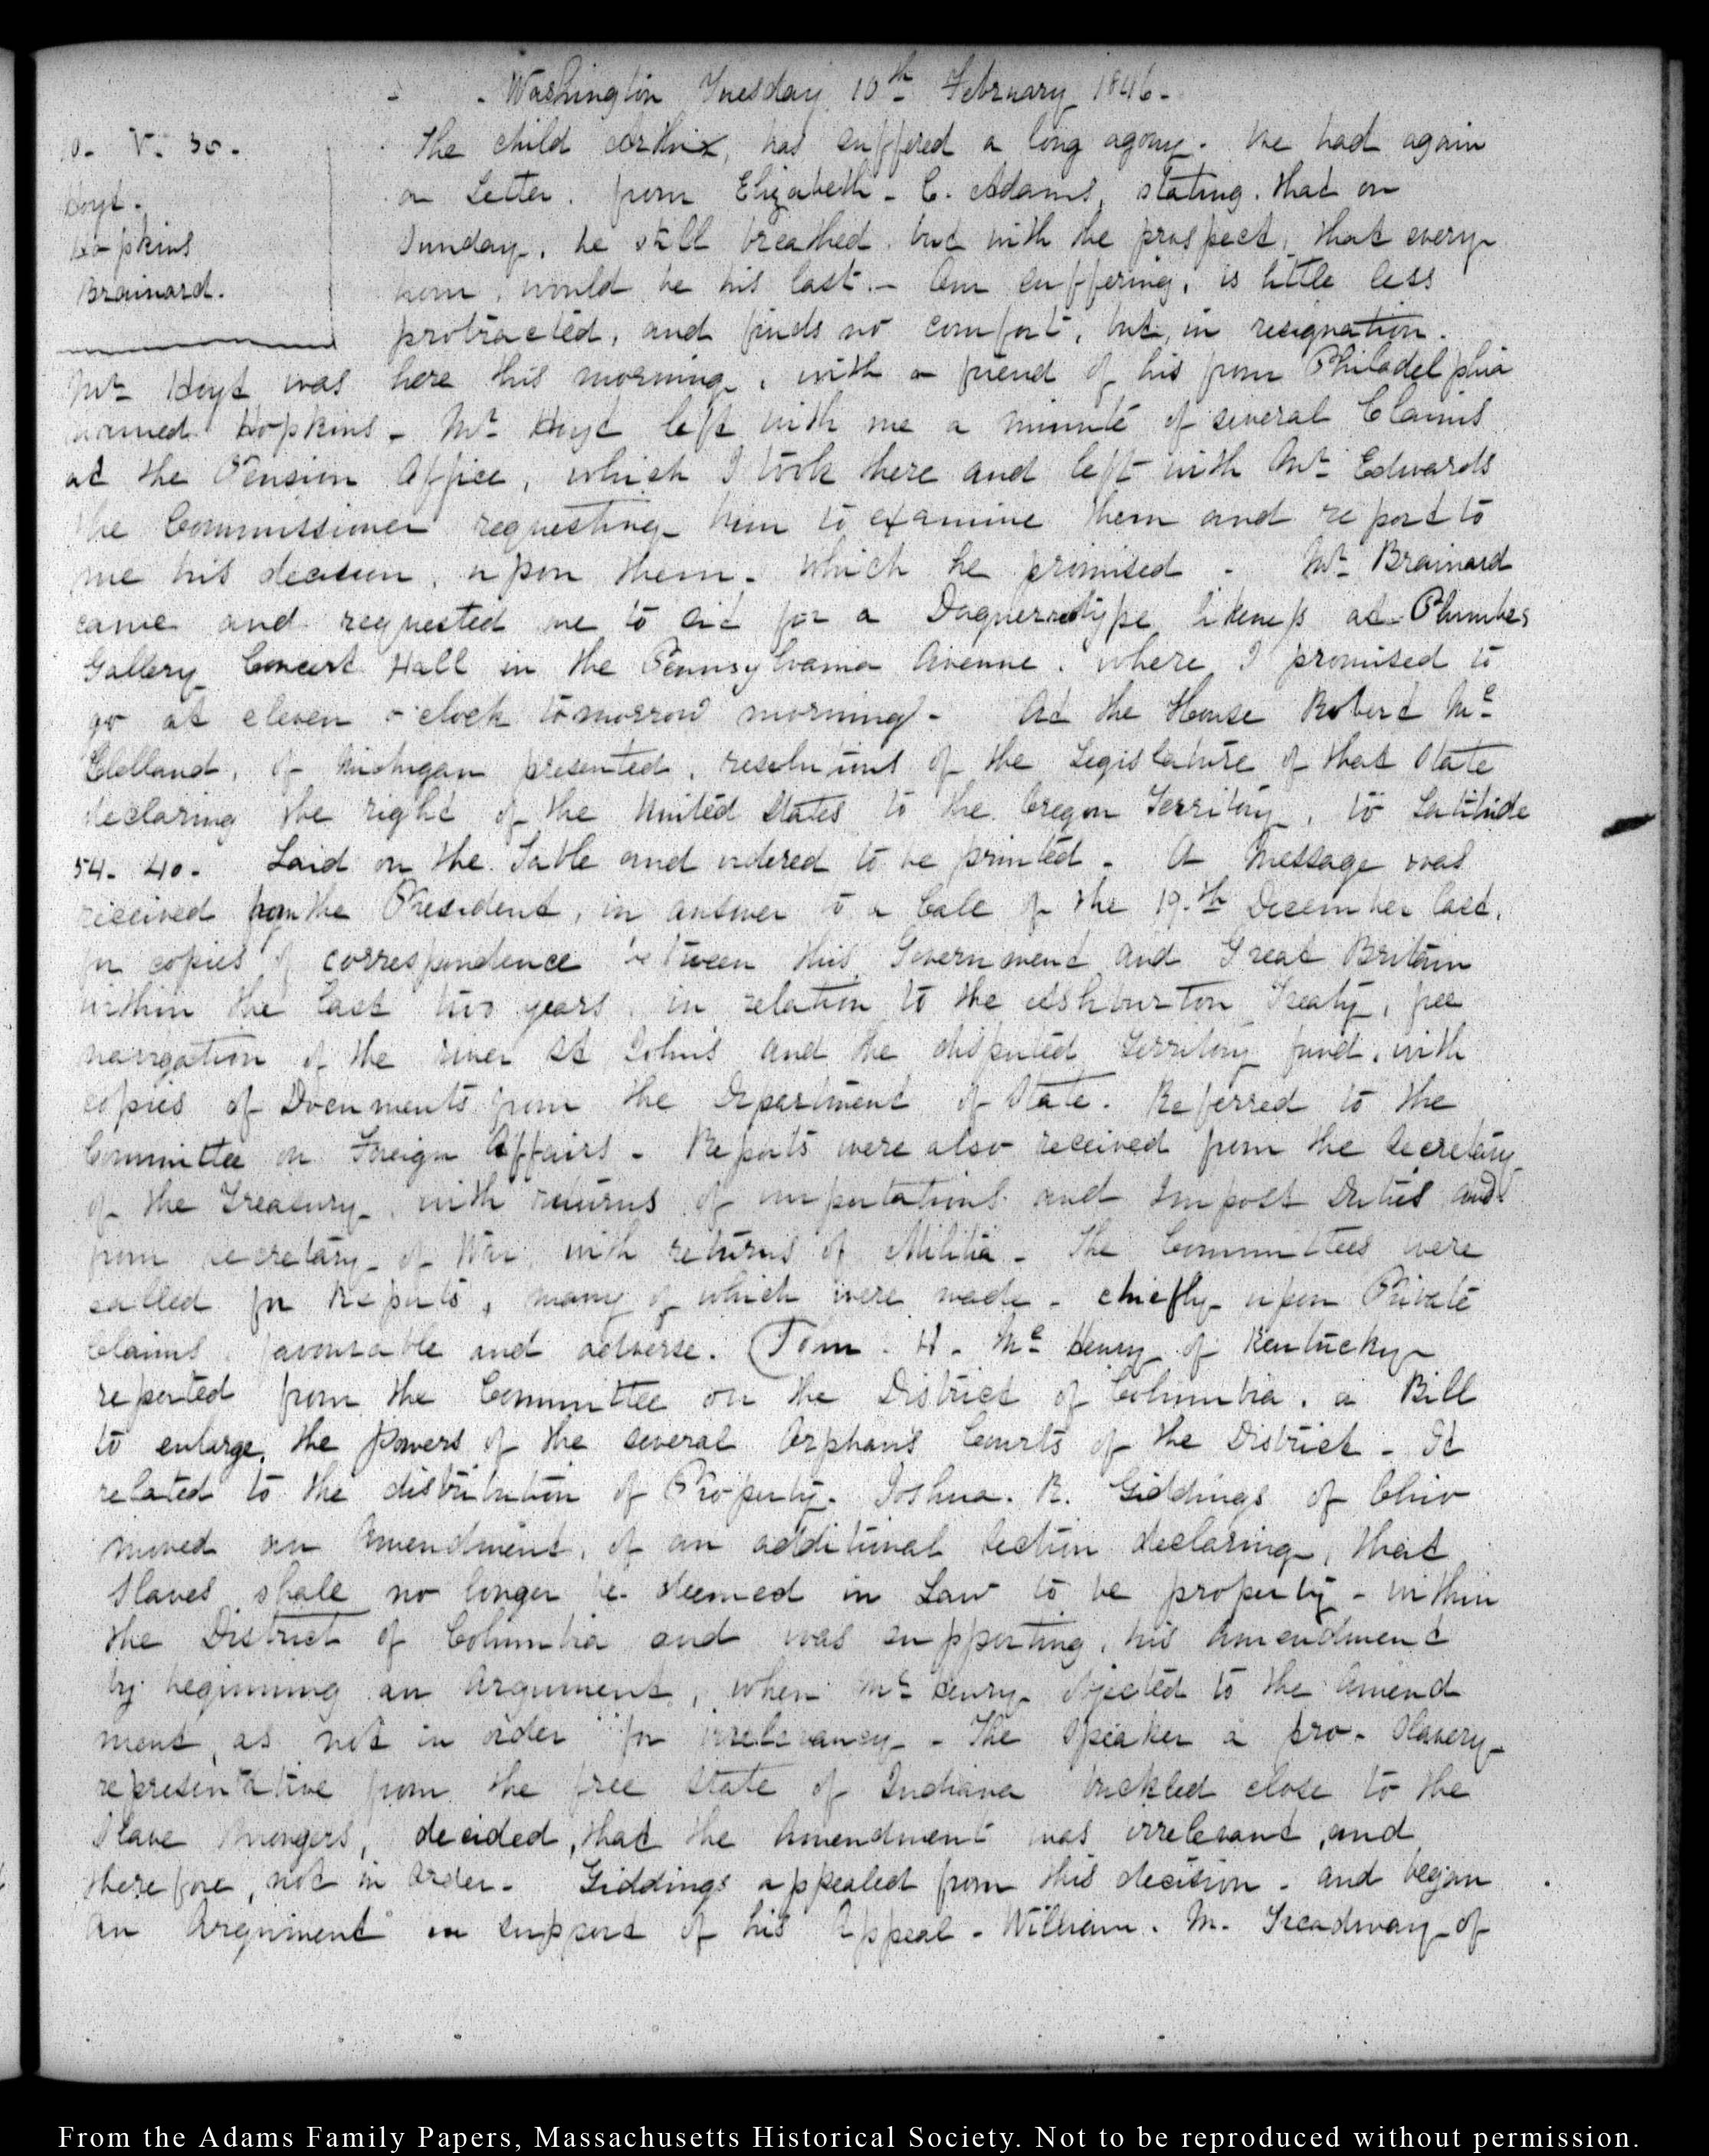 Washington Tuesday 10th February 1846.
10. V. 30.
Hoyt.
Hopkins
Brainard.
The child Arthur, has suffered a long agony. We had again
a Letter from Elizabeth. C. Adams, stating that on
Sunday, he still breathed but with the prospect, that every
hour, would be his last. Our suffering, is little less
protracted, and finds no comfort, but, in resignation.
Mr Hoyt was here this morning, with a friend of his from Philadelphia
named Hopkins. Mr Hoyt left with me a minute of several Claims
at the Pension Office, which I took there and left with Mr Edwards
the Commissioner requesting him to examine them and report to
me his decision, upon them. which he promised. Mr Brainard
came and requested me to sit for a Daguerrotype likeness at Plumbes
Gallery Concert Hall in the Pennsylvania Avenue. where I promised to
go at eleven o'clock tomorrow morning. At the House Robert Mc
Clelland, of Michigan presented, resolutions of the Legislature of that State
declaring the right of the United States to the Oregon Territory, to Latitude
54. 40. Laid on the Table and ordered to be printed. A Message was
received from the President, in answer to a Call of the 19.th December last,
for copies of correspondence between this Government and Great Britain
within the last two years, in relation to the Ashburton Treaty, free
navigation of the river St Johns and the disputed territory fund, with
copies of Documents from the Department of State. Referred to the
Committee on Foreign Affairs. Reports were also received from the Secretary
of the Treasury, with returns of importations and Impost Duties and
from Secretary of War, with returns of Militia. The Committees were
called for Reports, many of which were made. chiefly upon Private
Claims, favourable and adverse. John. H. Mc Henry of Kentucky
reported from the Committee on the District of Columbia, a Bill
to enlarge, the powers of the several Orphans Courts of the District. It
related to the distribution of Property. Joshua. R. Giddings of Ohio
moved an Amendment, of an additional section declaring, that
Slaves shall no longer be deemed in Law to be property. within
the District of Columbia and was supporting, his amendment
by beginning an Argument, when Mc Henry objected to the Amend
ment, as not in order for irrelevancy. The Speaker a pro-Slavery
representative from the free State of Indiana buckled close to the
Slave mongers, decided, that the Amendment was irrelevant, and
therefore, not in Order. Giddings appealed from this decision. and began
an Argument in support of his Appeal. William. M. Treadway of
From the Adams Family Papers, Massachusetts Historical Society. Not to be reproduced without permission.